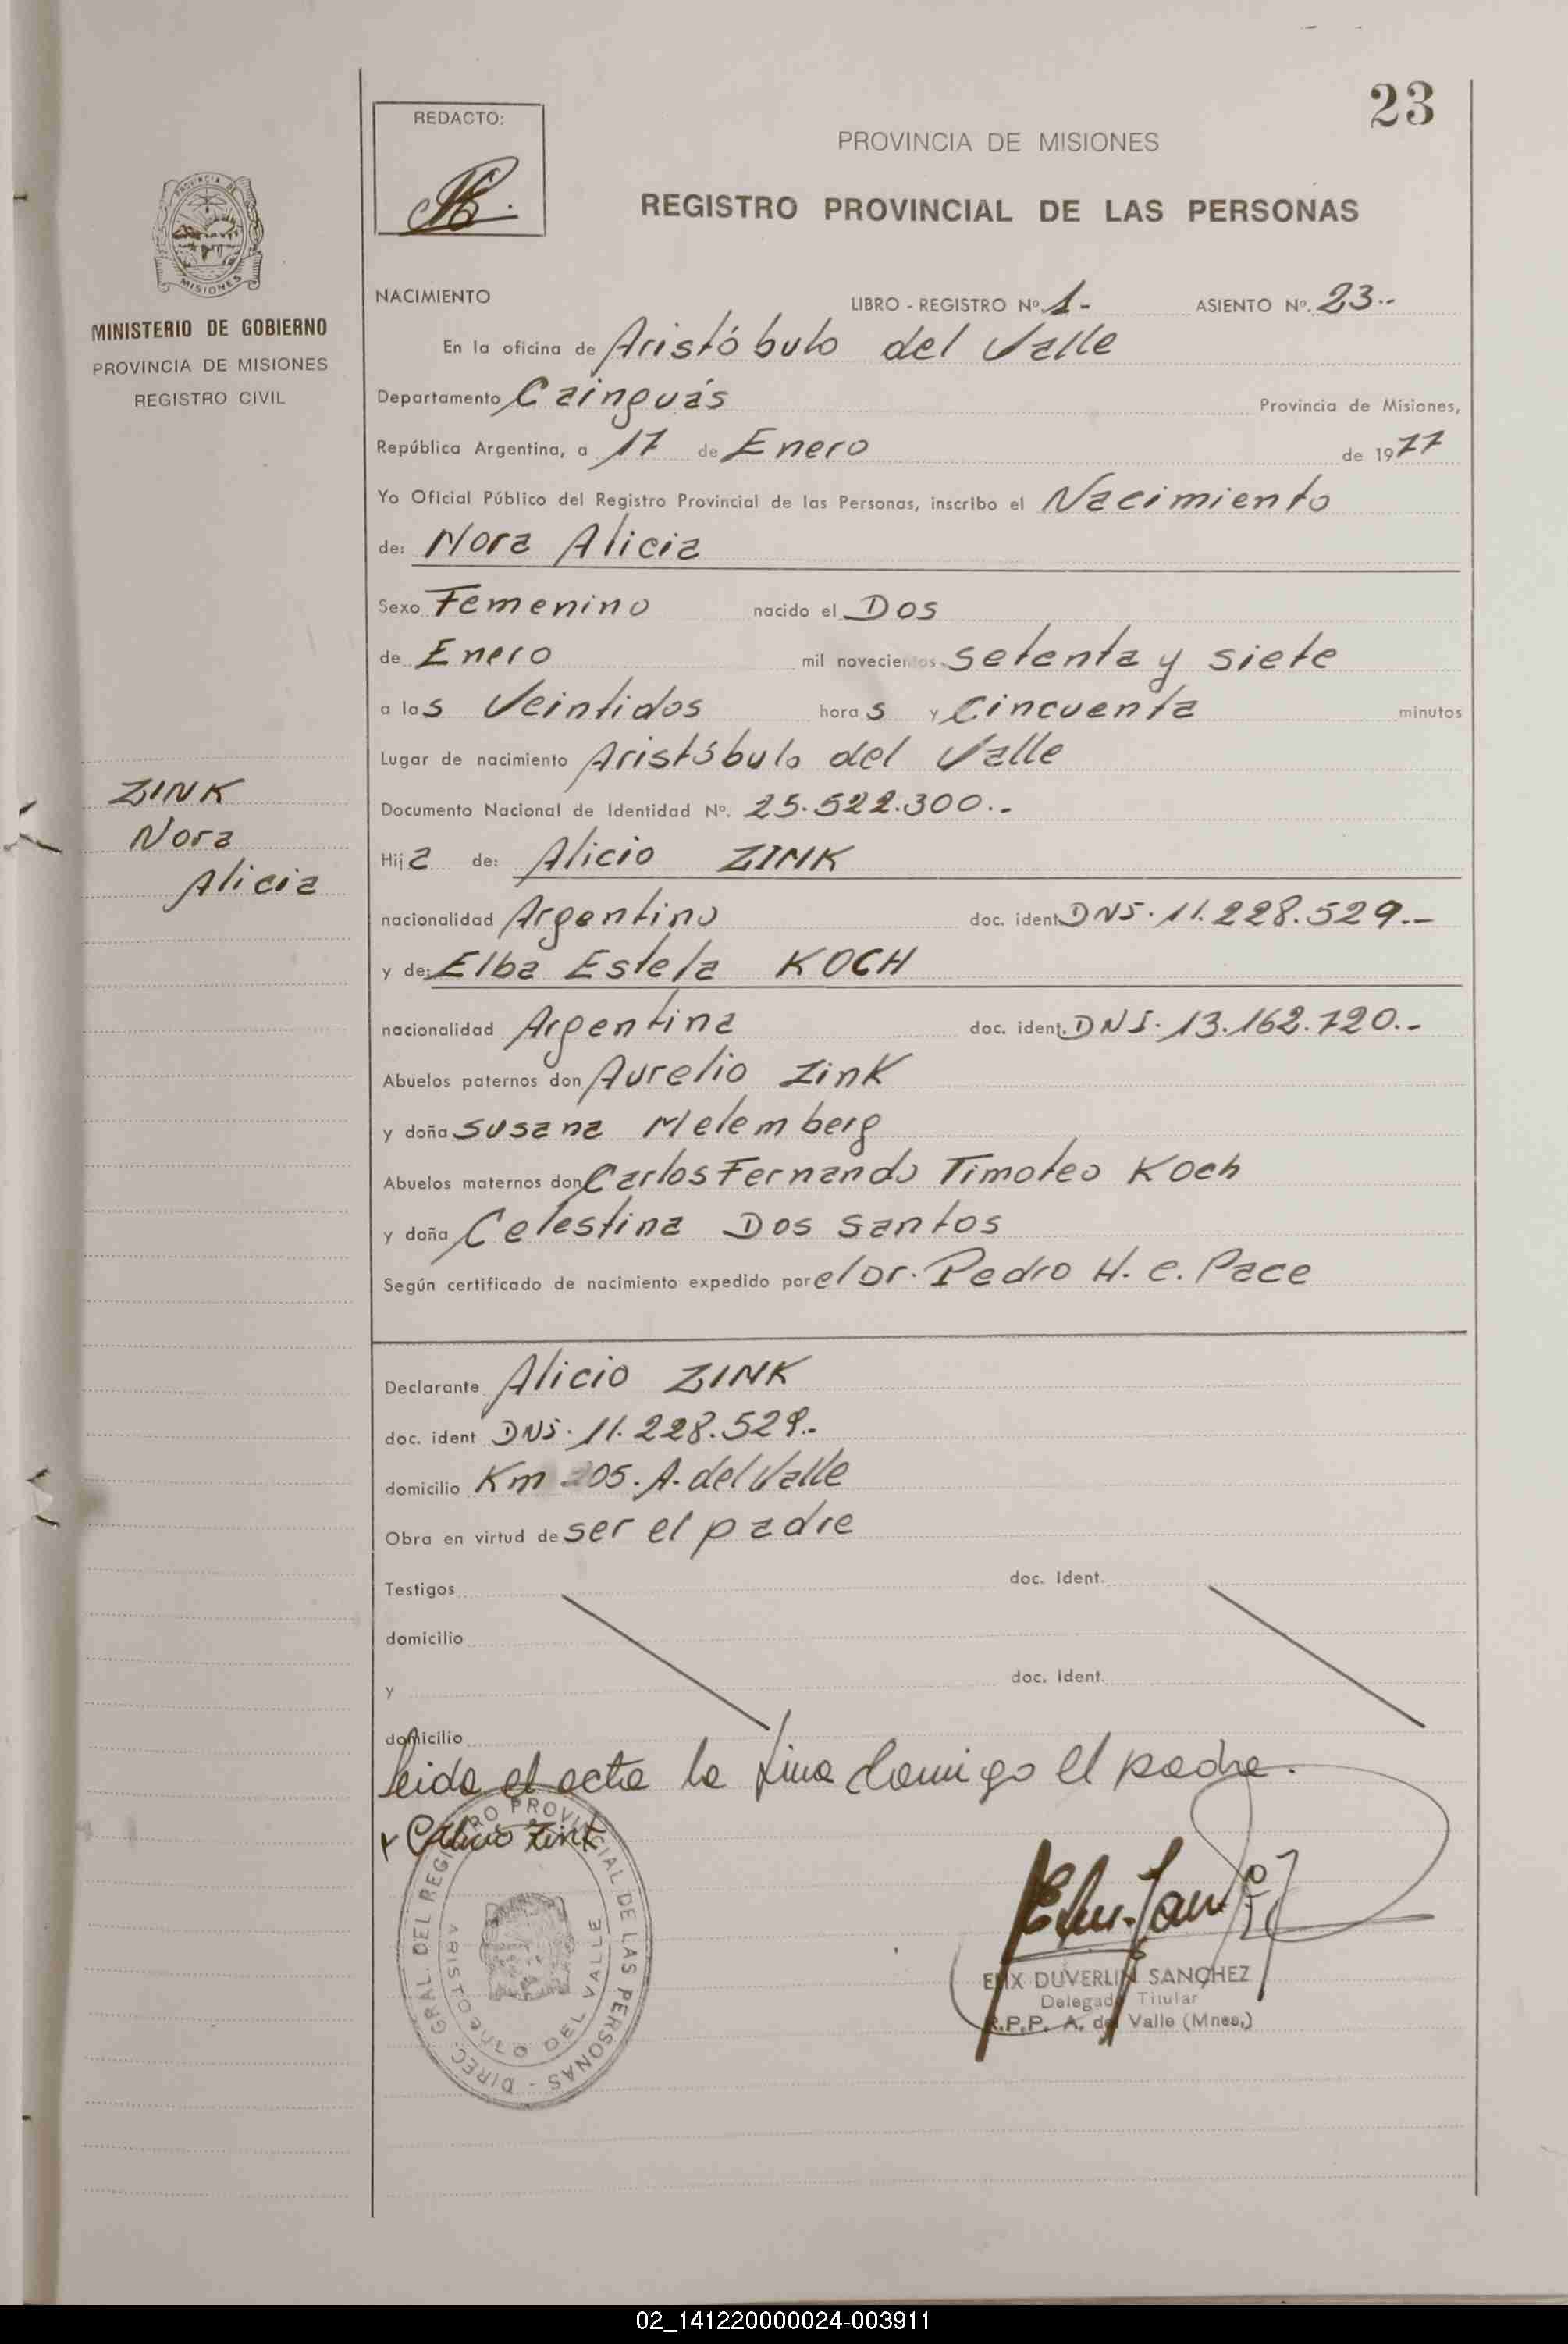 23
REDACTO:
PROVINCIA DE MISIONES
REGISTRO PROVINCIAL DE LAS PERSONAS
PROVINCIA DE
MISIONES
MINISTERIO DE GOBIERNO
PROVINCIA DE MISIONES
REGISTRO CIVIL
NACIMIENTO LIBRO - REGISTRO Nº 1- ASIENTO Nº. 23.-
En la oficina de Aristóbulo del Valle
Departamento Cainguás Provincia de Misiones,
República Argentina, a 17 de Enero de 1977
Yo Oficial Público del Registro Provincial de las Personas, inscribo el Nacimiento
de: Nora Alicia
Sexo Femenino nacido el Dos
de Enero mil novecientos setenta y siete
a las Veintidos horas y Cincuenta minutos
Lugar de nacimiento Aristóbulo del Valle
Documento Nacional de Identidad Nº. 25.522.300.-
ZINK
Nora
Alicia
Hija de: Alicio ZINK
nacionalidad Argentino doc. ident DNI. 11.228.529.-
y de: Elba Estela KOCH
nacionalidad Argentina doc. ident. DNI. 13.162.720.-
Abuelos paternos don Aurelio Zink
y doña Susana Melemberg
Abuelos maternos don Carlos Fernando Timoteo Koch
y doña Celestina Dos Santos
Según certificado de nacimiento expedido por el Dr. Pedro H. C. Pace
Declarante Alicio ZINK
doc. ident DNI. 11.228.529.-
domicilio Km 205. A. del Valle
Obra en virtud de ser el padre
Testigos doc. Ident.
domicilio
y doc. Ident.
domicilio
leida el acta la firma conmigo el padre.
x Alicio Zink
DIREC. GRAL. DEL REGISTRO PROVINCIAL DE LAS PERSONAS -
ARISTOBULO DEL VALLE
ELIX DUVERLIN SANCHEZ
Delegado Titular
R.P.P. A. del Valle (Mnes.)
02_141220000024-003911